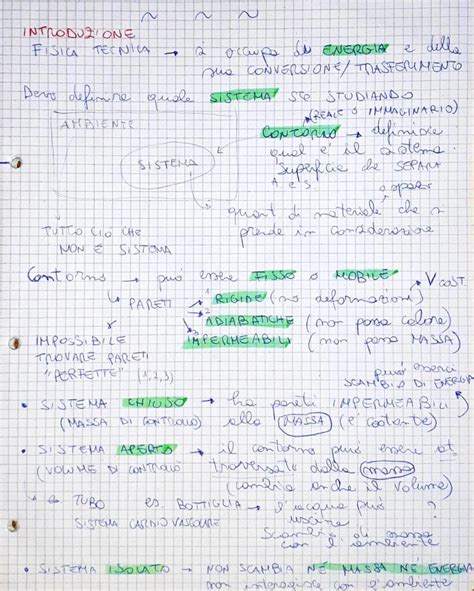 INTRODUZIONE
FISICA TECNICA → si occupa di ENERGIA e della
sua CONVERSIONE/TRASFERIMENTO
Devo definire quale SISTEMA sto STUDIANDO
(REALE O IMMAGINARIO)
AMBIENTE
CONTORNO → definisce
qual è il sistema
SISTEMA
Superficie che SEPARA
A e S
quant di materiale che si
prende in considerazione
TUTTO CIÒ CHE
NON È SISTEMA
Contorno → può essere FISSO o MOBILE
↳ PARETI 1 RIGIDE (no deformazioni) V COST.
2 ADIABATICHE (non passa calore)
3 IMPERMEABILI (non passa MASSA)
IMPOSSIBILE
TROVARE PARETI
"PERFETTE" (1,2,3)
può esserci
SCAMBIO DI ENERGIA
• SISTEMA CHIUSO → ha pareti IMPERMEABILI
(MASSA DI CONTROLLO) alla MASSA (è costante)
• SISTEMA APERTO → il contorno può essere
(VOLUME DI CONTROLLO) traversato dalla massa
(cambia anche il volume)
↳ es TUBO es. BOTTIGLIA → l'acqua può ?
SISTEMA CARDIOVASCOLARE uscire
Scambio di massa
con l'ambiente
• SISTEMA ISOLATO → NON SCAMBIA NÉ MASSA NÉ ENERGIA
non interagisce con l'ambiente